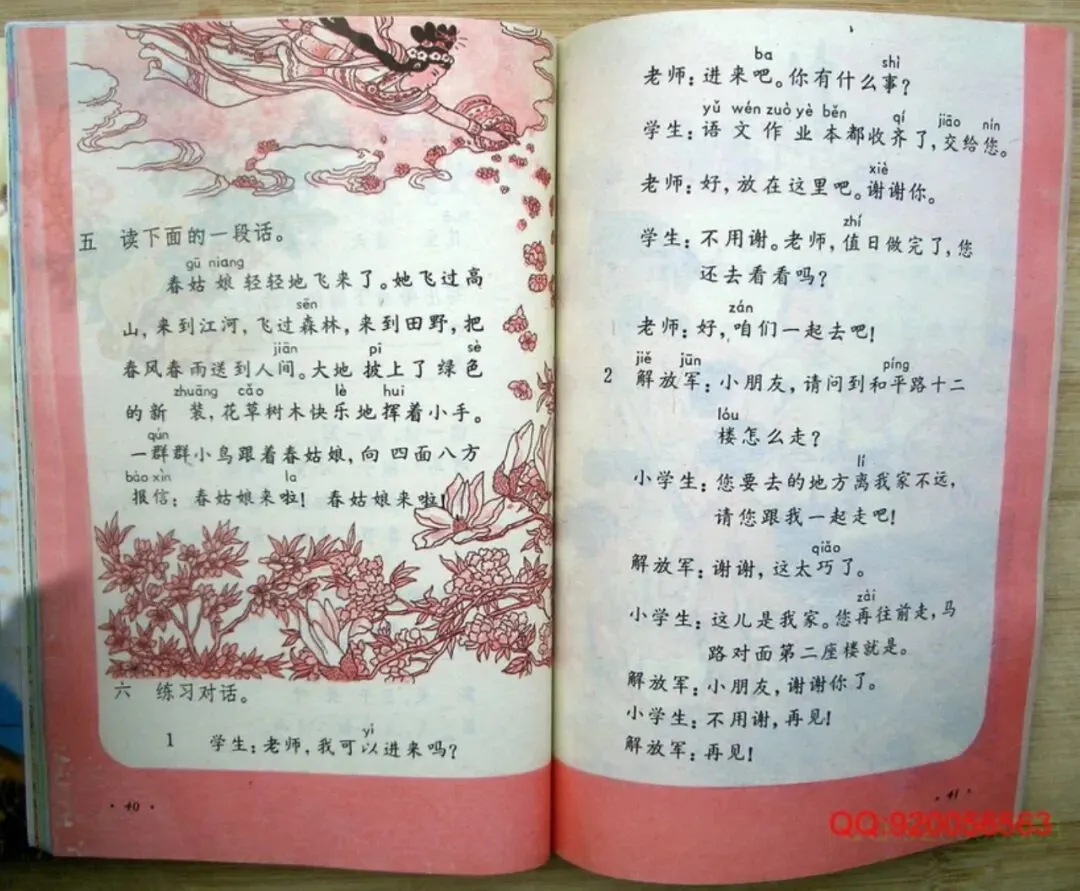 五 读下面的一段话。
gū niang
春姑娘轻轻地飞来了。她飞过高
sēn
山，来到江河，飞过森林，来到田野，把
jiān pī sè
春风春雨送到人间。大地披上了绿色
zhuāng cǎo lè huī
的新装，花草树木快乐地挥着小手。
qún
一群群小鸟跟着春姑娘，向四面八方
bào xìn la
报信：春姑娘来啦！春姑娘来啦！
六 练习对话。
yǐ
1 学生：老师，我可以进来吗？
· 40 ·
ba shì
老师：进来吧。你有什么事？
yǔ wén zuò yè běn qí jiāo nín
学生：语文作业本都收齐了，交给您。
xiè
老师：好，放在这里吧。谢谢你。
zhí
学生：不用谢。老师，值日做完了，您
还去看看吗？
zán
老师：好，咱们一起去吧！
jiě jūn píng
2 解放军：小朋友，请问到和平路十二
lóu
楼怎么走？
lí
小学生：您要去的地方离我家不远，
请您跟我一起走吧！
qiǎo
解放军：谢谢，这太巧了。
zài
小学生：这儿是我家。您再往前走，马
路对面第二座楼就是。
解放军：小朋友，谢谢你了。
小学生：不用谢，再见！
解放军：再见！
· 41 ·
QQ:920056563